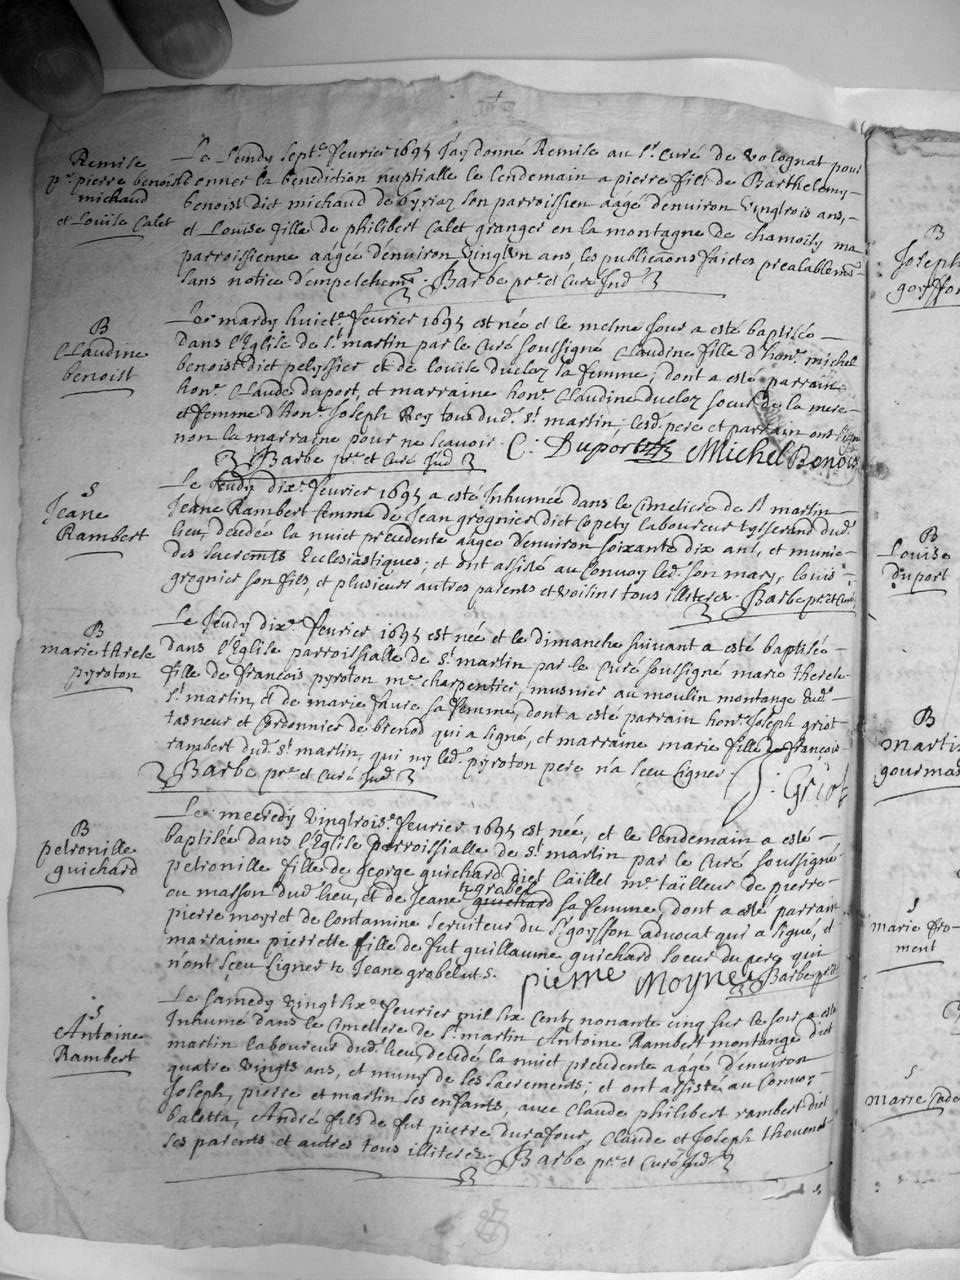 Remise
pr. pierre benoist
michaud
et Louise Calet
Le Lundy septe. fevrier 1695 J'ay donné Remise au Sr. Curé de Volognat pour
donner la benediction nuptialle le lendemain a pierre fils de Barthelemy
benoist dict michaud de Lyriaz son parroissien aagé d'environ vingtrois ans,
et Louise fille de philibert Calet granger en la montagne de chamoisy ma
parroissienne aâgée d'environ vingt ans, les publicaons faictes prealablemt.
sans notice d'empeschemt. Barbe ptre. et Curé Jud.
B
Claudine
benoist
Le mardy huicte. fevrier 1695 est née et le mesme jour a esté baptisée
dans l'Eglise de St. martin par le Curé soussigné Claudine fille d'honn. michel
benoist dict pelyssier et de Louise ducloz sa femme; dont a esté parrain
honn. Claude duport, et marraine honn. Claudine ducloz soeur de la mere
et femme d'honn. Joseph Rey tous dud. St. martin, lesd. pere et parrain ont signé
non la marraine pour ne sçavoir. C: Duport Michel Benois
Barbe ptre. et Curé Jud.
S
Jeane
Rambert
Le Jeudy dixe. fevrier 1695 a esté Inhumée dans le Cimetiere de St. martin
Jeane Rambert femme de Jean grognier dict Copety laboureur tysserand dud.
lieu, decedée la nuict precedente aagée d'environ soixante dix ans, et munie
des Sacremts. Ecclesiastiques; et ont assisté au Convoy led. son mary, Louis
grognier son fils, et plusieurs autres parents et voisins tous illiterez. Barbe ptre. et Curé
B
marie therese
pyroton
Le Jeudy dixe. fevrier 1695 est née et le dimanche suivant a esté baptisée
dans l'Eglise parroissialle de St. martin par le Curé soussigné marie therese
fille de francois pyroton me. charpentier, musnier au moulin montange dud.
St. martin, et de marie faure sa femme, dont a esté parrain honn. Joseph griot
tasneur et Cordonnier de brenod qui a signé, et marraine marie fille de françois
rambert dud. St. martin, qui ny led. pyroton pere n'a sceu signer.
Barbe ptre. et Curé Jud. J: Griot
B
petronille
guichard
Le mecredy vingtroise. fevrier 1695 est née, et le lendemain a esté
baptisée dans l'Eglise parroissialle de St. martin par le Curé soussigné
petronille fille de george guichard dict Caillet me. tailleur de pierre
ou masson dud. lieu, et de Jeane guichard grabelut sa femme, dont a esté parrain
pierre moyret de Contamine serviteur du Sr. goysson advocat qui a signé, et
marraine pierrette fille de fut guillaume guichard soeur du pere qui
n'ont sçeu signer Jeane grabelut S.
pierre Moyne Barbe ptre.
S
Antoine
Rambert
Le samedy vingtsixe. fevrier mil six Cents nonante cinq sur le soir, a esté
Inhumé dans le Cimetiere de St. martin Antoine Rambert montange dict
martin laboureur dud. lieu, decedé la nuict precedente aagé d'environ
quatre vingts ans, et muny de les sacrements; et ont assisté au Convoy
Joseph, pierre et martin ses enfants, avec Claude philibert rambert dict
baletta, André fils de fut pierre durafour, Claude et Joseph thouenot
ses parents et autres tous illiterez. Barbe ptre. et Curé Jud.
B
Joseph
goysson
B
Louise
duport
B
martin
gourma
S
marie fro-
ment
S
marie